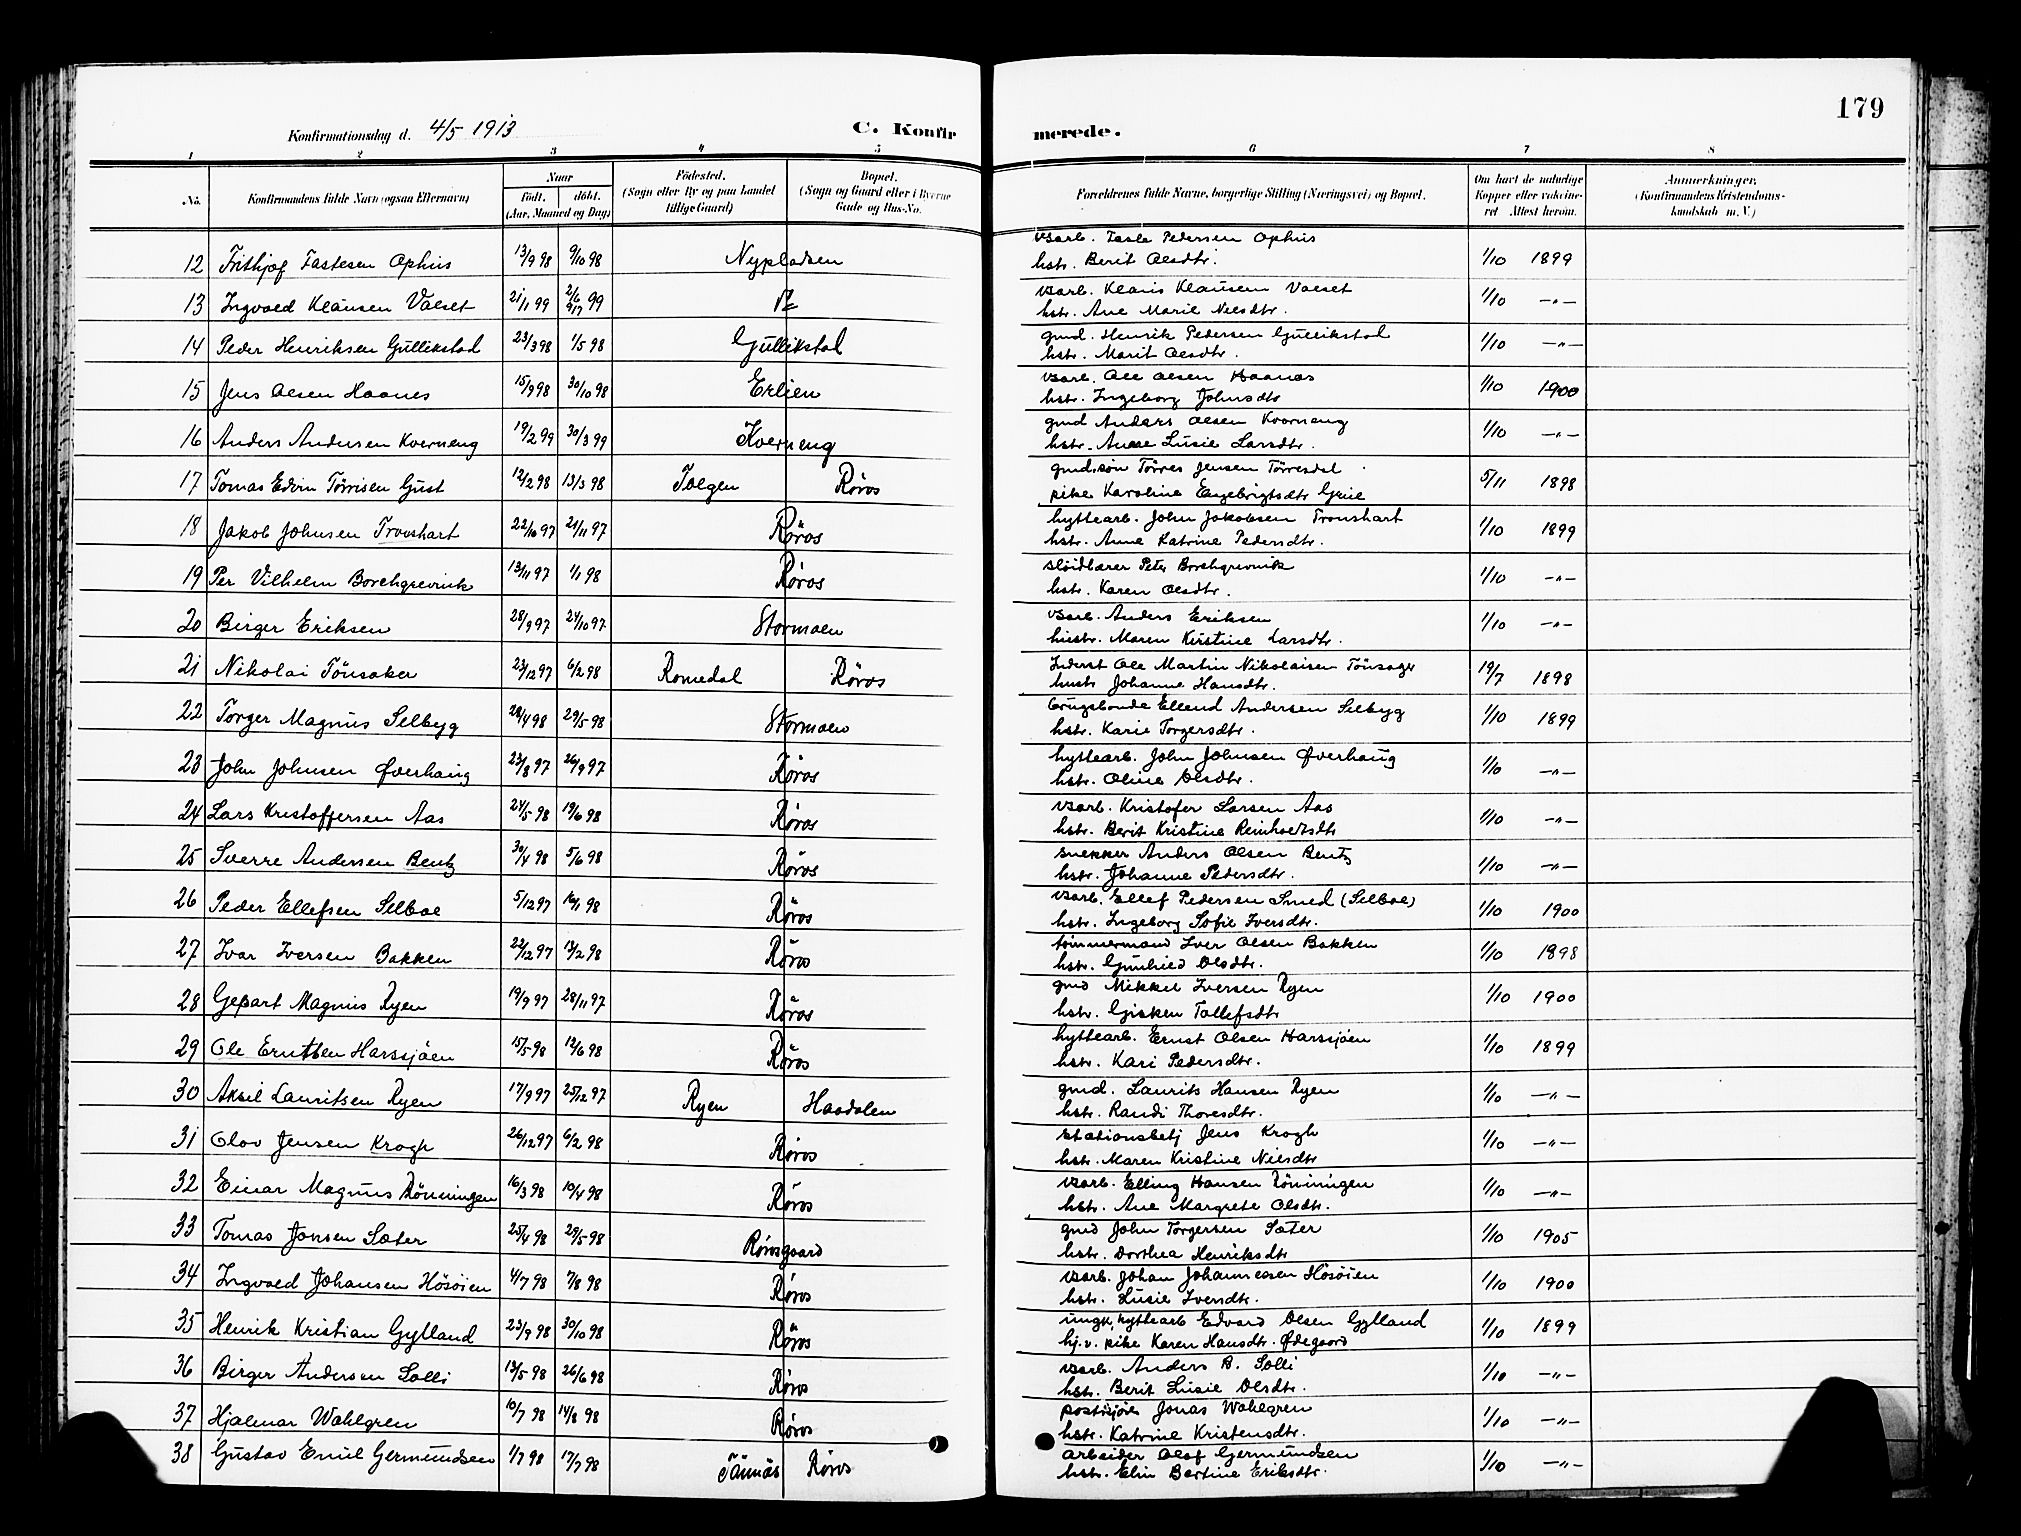 179
Konfirmationsdag d. 4/5 1913 C. Konfirmerede.
1 2 3 4 5 6 7 8
No. Konfirmandens fulde Navn (ogsaa Efternavn) Naar födt. döbt. (Aar, Maaned og Dag) Födested. (Sogn eller By og paa Landet tillige Gaard) Bopæl. (Sogn og Gaard eller i Byerne Gade og Hus-No. Forældrenes fulde Navne, borgerlige Stilling (Næringsvei) og Bopæl. Om havt de naturlige Kopper eller vakcineret. Attest herom. Anmærkninger. (Konfirmandens Kristendomskundskab m. V.)
12 Frithjof Fastesen Ophus 13/9 98 9/10 98 Nypladsen vsarb. Faste Pedersen Ophus 1/10 1899
hstr. Berit Olsdtr.
13 Ingvald Klausen Valset 21/1 99 2/6 9/17 99 vsarb. Klaus Klausen Valset 1/10 —"—
hstr. Ane Marie Nielsdtr.
14 Peder Henriksen Gullikstad 23/3 98 1/5 98 Gullikstad gmd. Henrik Pedersen Gullikstad 1/10 —"—
hstr. Marit Olsdtr.
15 Jens Olsen Haanes 15/9 98 30/10 98 Erlien vsarb. Ole Olsen Haanæs 1/10 1900
hstr. Ingeborg Johnsdtr
16 Anders Andersen Kverneng 19/2 99 30/3 99 Kverneng gmd Anders Olsen Kverneng 1/10 —"—
hstr. Anne Lusie Larsdtr.
17 Tomas Edvin Törrisen Gust 12/2 98 13/3 98 Tolgen Røros gmd.søn Törres Jensen Törresdal 5/11 1898
pike Karoline Engebrigtsdtr Grue
18 Jakob Johnsen Tronshart 22/10 97 21/11 97 Røros hyttearb. John Jakobsen Tronshart 1/10 1899
hstr. Anne Katrine Pedersdtr.
19 Per Vilhelm Borchgrevink 13/11 97 1/1 98 Røros sløidlærer Peter Borchgrevink 1/10 —"—
hstr. Karen Olsdtr.
20 Birger Eriksen 28/9 97 24/10 97 Stormoen vsarb. Anders Eriksen 1/10 —"—
hustr. Maren Kirstine Larsdtr.
21 Nikolai Tönsaker 23/12 97 6/2 98 Romedal Røros Inderst Ole Martin Nikolaisen Tönsager 19/7 1898
hustr Johanne Hansdtr.
22 Torger Magnus Selbyg 28/4 98 29/5 98 Stormoen Brugsbonde Ellend Andersen Selbyg 1/10 1899
hstr. Karie Torgersdtr.
23 John Johnsen Øverhaug 23/8 97 26/9 97 Røros hyttearb. John Johnsen Øverhaug 1/10 —"—
hstr. Oline Olsdtr.
24 Lars Kristoffersen Aas 24/5 98 19/6 98 Røros vsarb. Kristofer Larsen Aas 1/10 —"—
hstr. Berit Kristine Reinholdtsdtr
25 Sverre Andersen Bentz 30/4 98 5/6 98 Røros snekker Anders Olsen Bentz 1/10 —"—
hstr. Johanne Pedersdtr.
26 Peder Ellefsen Selboe 5/12 97 16/1 98 Røros vsarb. Ellef Pedersen Smed (Selboe) 1/10 1900
hstr. Ingeborg Sofie Iversdtr.
27 Ivar Iversen Bakken 22/12 97 13/2 98 Røros tømmermand Iver Olsen Bakken 1/10 1898
hstr. Gunhild Olsdtr.
28 Gepart Magnus Ryen 19/9 97 28/11 97 Røros gmd Mikkel Iversen Ryen 1/10 1900
hstr. Gisken Tollefsdtr
29 Ole Ernstsen Harssjöen 15/5 98 12/6 98 Røros hyttearb. Ernst Olsen Harssjöen 1/10 1899
hstr. Kari Pedersdtr.
30 Aksel Lauritsen Ryen 17/9 97 25/12 97 Ryen Haadalen gmd. Laurits Hansen Ryen 1/10 —"—
hstr. Randi Thoresdtr.
31 Olav Jensen Krogh 26/12 97 6/2 98 Røros stationsbetj Jens Krogh 1/10 —"—
hstr. Maren Kristine Nielsdtr
32 Einar Magnus Rönningen 16/3 98 10/4 98 Røros vsarb. Elling Hansen Rönningen 1/10 —"—
hstr. Ane Margrete Olsdtr.
33 Tomas Jonsen Sæter 25/4 98 29/5 98 Rørosgaard gmd John Torgersen Sæter 1/10 1905
hstr. Dorthea Henriksdtr
34 Ingvald Johansen Hösöien 4/7 98 7/8 98 Røros vsarb. Johan Johannesen Hösöien 1/10 1900
hstr. Lusie Iversdtr.
35 Henrik Kristian Gylland 23/9 98 30/10 98 Røros ungk. hyttearb Edvard Olsen Gylland 1/10 1899
hj.v. pike Karen Hansdtr. Ødegaard
36 Birger Andersen Solli 13/5 98 26/6 98 Røros vsarb. Anders B. Solli 1/10 —"—
hstr. Berit Lusie Olsdtr.
37 Hjalmar Wahlgren 10/7 98 14/8 98 Røros Jonas Wahlgren 1/10 —"—
hstr. Katrine Kristensdtr.
38 Gustav Emil Germundsen 1/7 98 17/7 98 Tännäs Røros arbeider Olof Germundsen 1/10 —"—
hstr. Elin Bertine Eriksdtr.